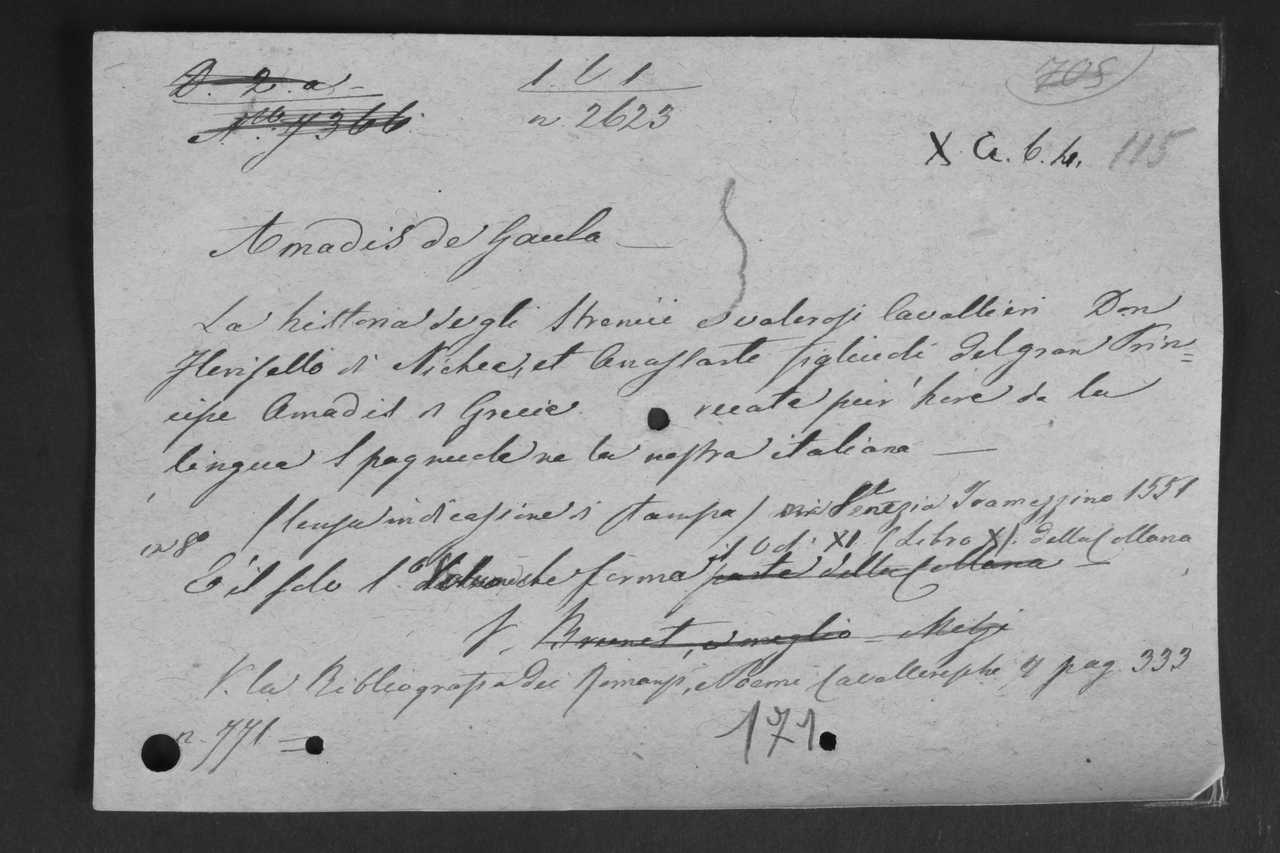 D. 2. a
1. b 1
705
No. 7366
n 2623
X G. b. 4. 115
Amadis de Gaula —
La historia degli strenui e valorosi Cavallieri Don
Florisello di Nichea, et Anassarte figliuoli del gran Prin=
cipe Amadis di Grecia recate pur' hora da la
lingua Spagnuola ne la nostra italiana —
in 8° (senza indicazione di stampa) Venezia Tramezzino 1551
il Vol. XI. (Libro X). della Collana
E' il solo che forma parte della Collana —
V. Brunet, e meglio Melzi
V. la Bibliografia dei Romanzi, e Poemi Cavallereschi pag. 333
n. 771 =
171